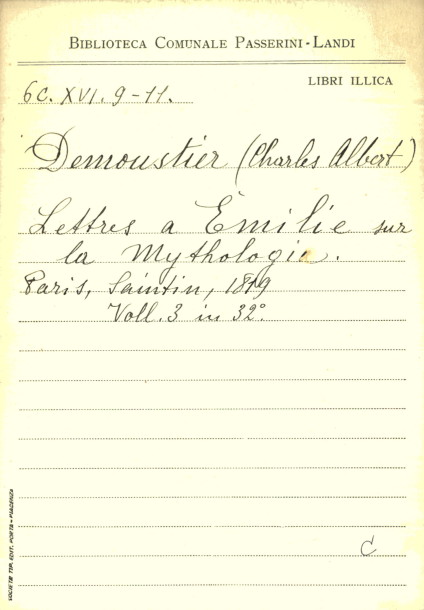 BIBLIOTECA COMUNALE PASSERINI-LANDI
LIBRI ILLICA
6C. XVI. 9-11.
Demoustier (Charles Albert)
Lettres a Émilie sur
la Mythologie.
Paris, Saintin, 1819
Voll. 3 in 32°.
C
SOCIETÀ TIP. EDIT. PORTA - PIACENZA